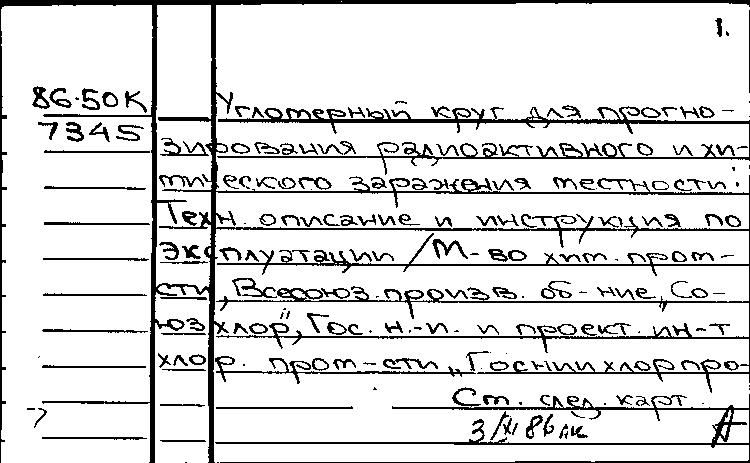 1.
86-50К
7345
Угломерный круг для прогно-
зирования радиоактивного и хи-
мического заражения местности:
Техн. описание и инструкция по
эксплуатации / М-во хим. пром-
сти, Всесоюз. произв. об-ние „Со-
юзхлор", Гос. н.-и. и проект. ин-т
хлор. пром-сти „Госниихлорпро-
См. след. карт.
3/XI 86